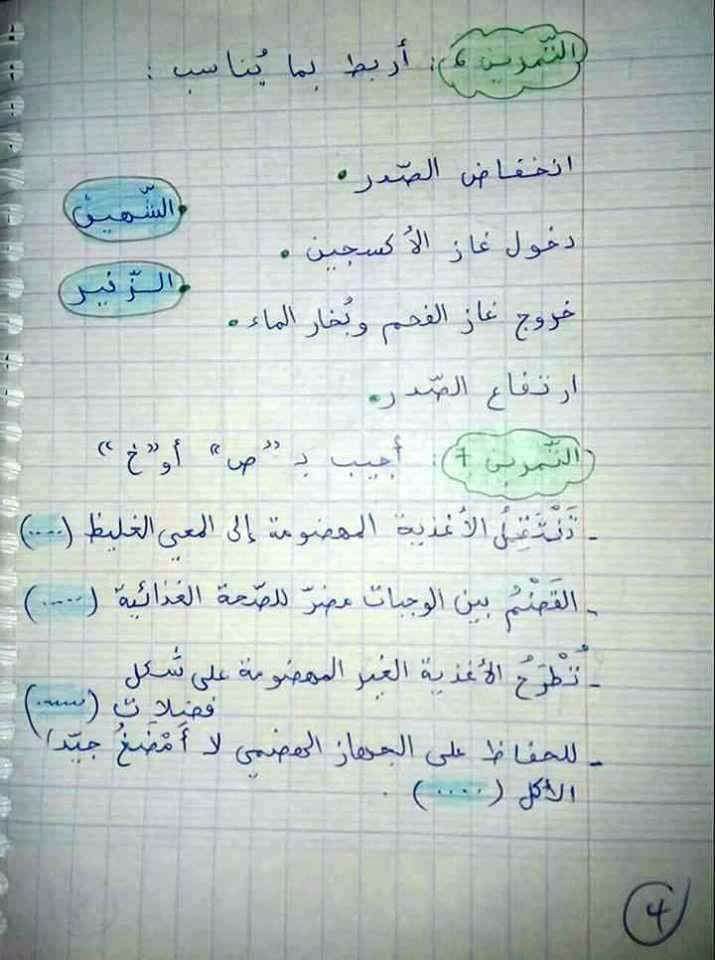 التّمرين 6 : أربط بما يُناسب :
انخفاض الصّدر •
• الشّهيق
دخول غاز الأكسجين •
• الزّفير
خروج غاز الفحم وبُخار الماء •
ارتفاع الصّدر •
التّمرين 7 : أجيب بـ "ص" أو "خ"
- تَنْتَقِلُ الأغذية المهضومة إلى المعي الغليظ (.....)
- القَضْمُ بين الوجبات مضرّ للصّحة الغذائية (.....)
- تُطْرَحُ الأغذية الغير المهضومة على شكل
فضلات (.....)
- للحفاظ على الجهاز الهضمي لا أَمْضَغُ جيّدا
الأكل (.....) .
4